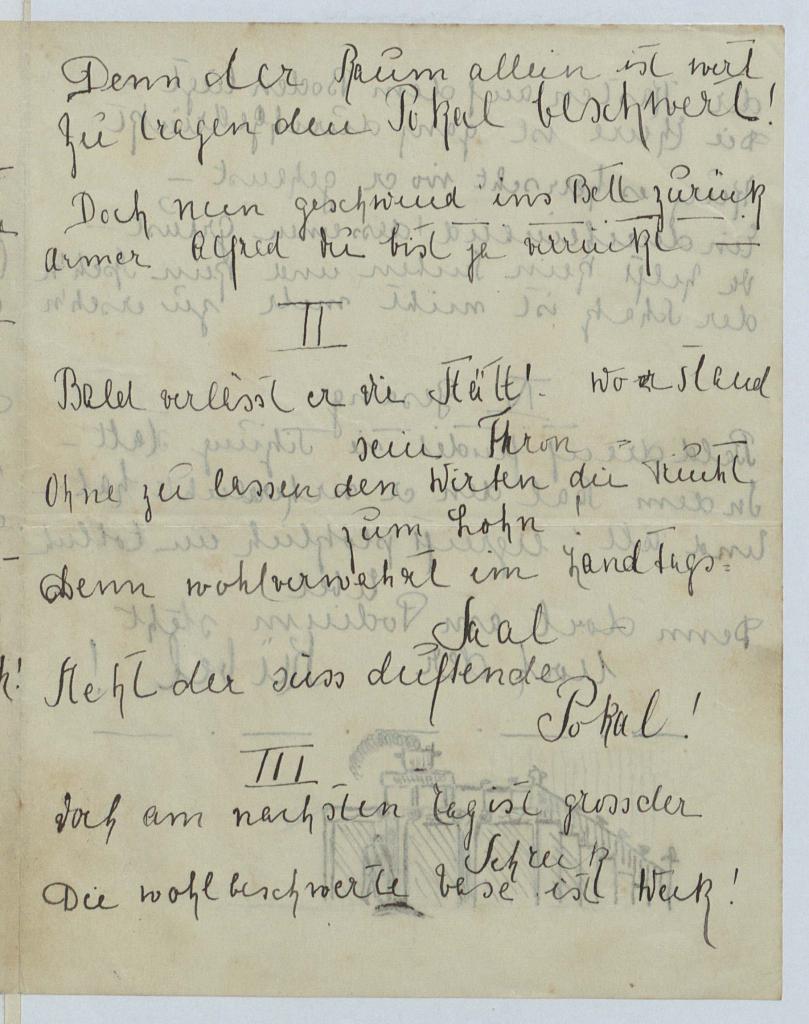 Denn der Raum allein ist wert
Zu tragen den Pokal beschwert!
Doch nun geschwind ins Bett zurück
armer Alfred du bist ja verrückt —
II
Bald verlässt er die Stätt! wo er stand
sein Thron –
Ohne zu lassen den Wirten die Frucht
zum Lohn!
Denn wohlverwahrt im Landtags=
Saal
steht der süss duftende
Pokal!
III
Doch am nachsten Tag ist gross der
Schreck
Die wohlbeschwerte Vase ist Weck!